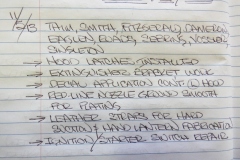 11/5/13 TAIM, SMITH, FITZGERALD, CAMERON,
EAGLEN, EVANS, SEEKINS, VOSSLER,
SINGLETON
→ HOOD LATCHES INSTALLED
→ EXTINGUISHER BRACKET WORK
→ DECAL APPLICATION CONT. @ HOOD
→ RED LINE NOZZLE GROUND SMOOTH
FOR PLATING
→ LEATHER STRAPS FOR HARD
SUCTION & HAND LANTERN FABRICATION
→ IGNITION/STARTER SWITCH REPAIR